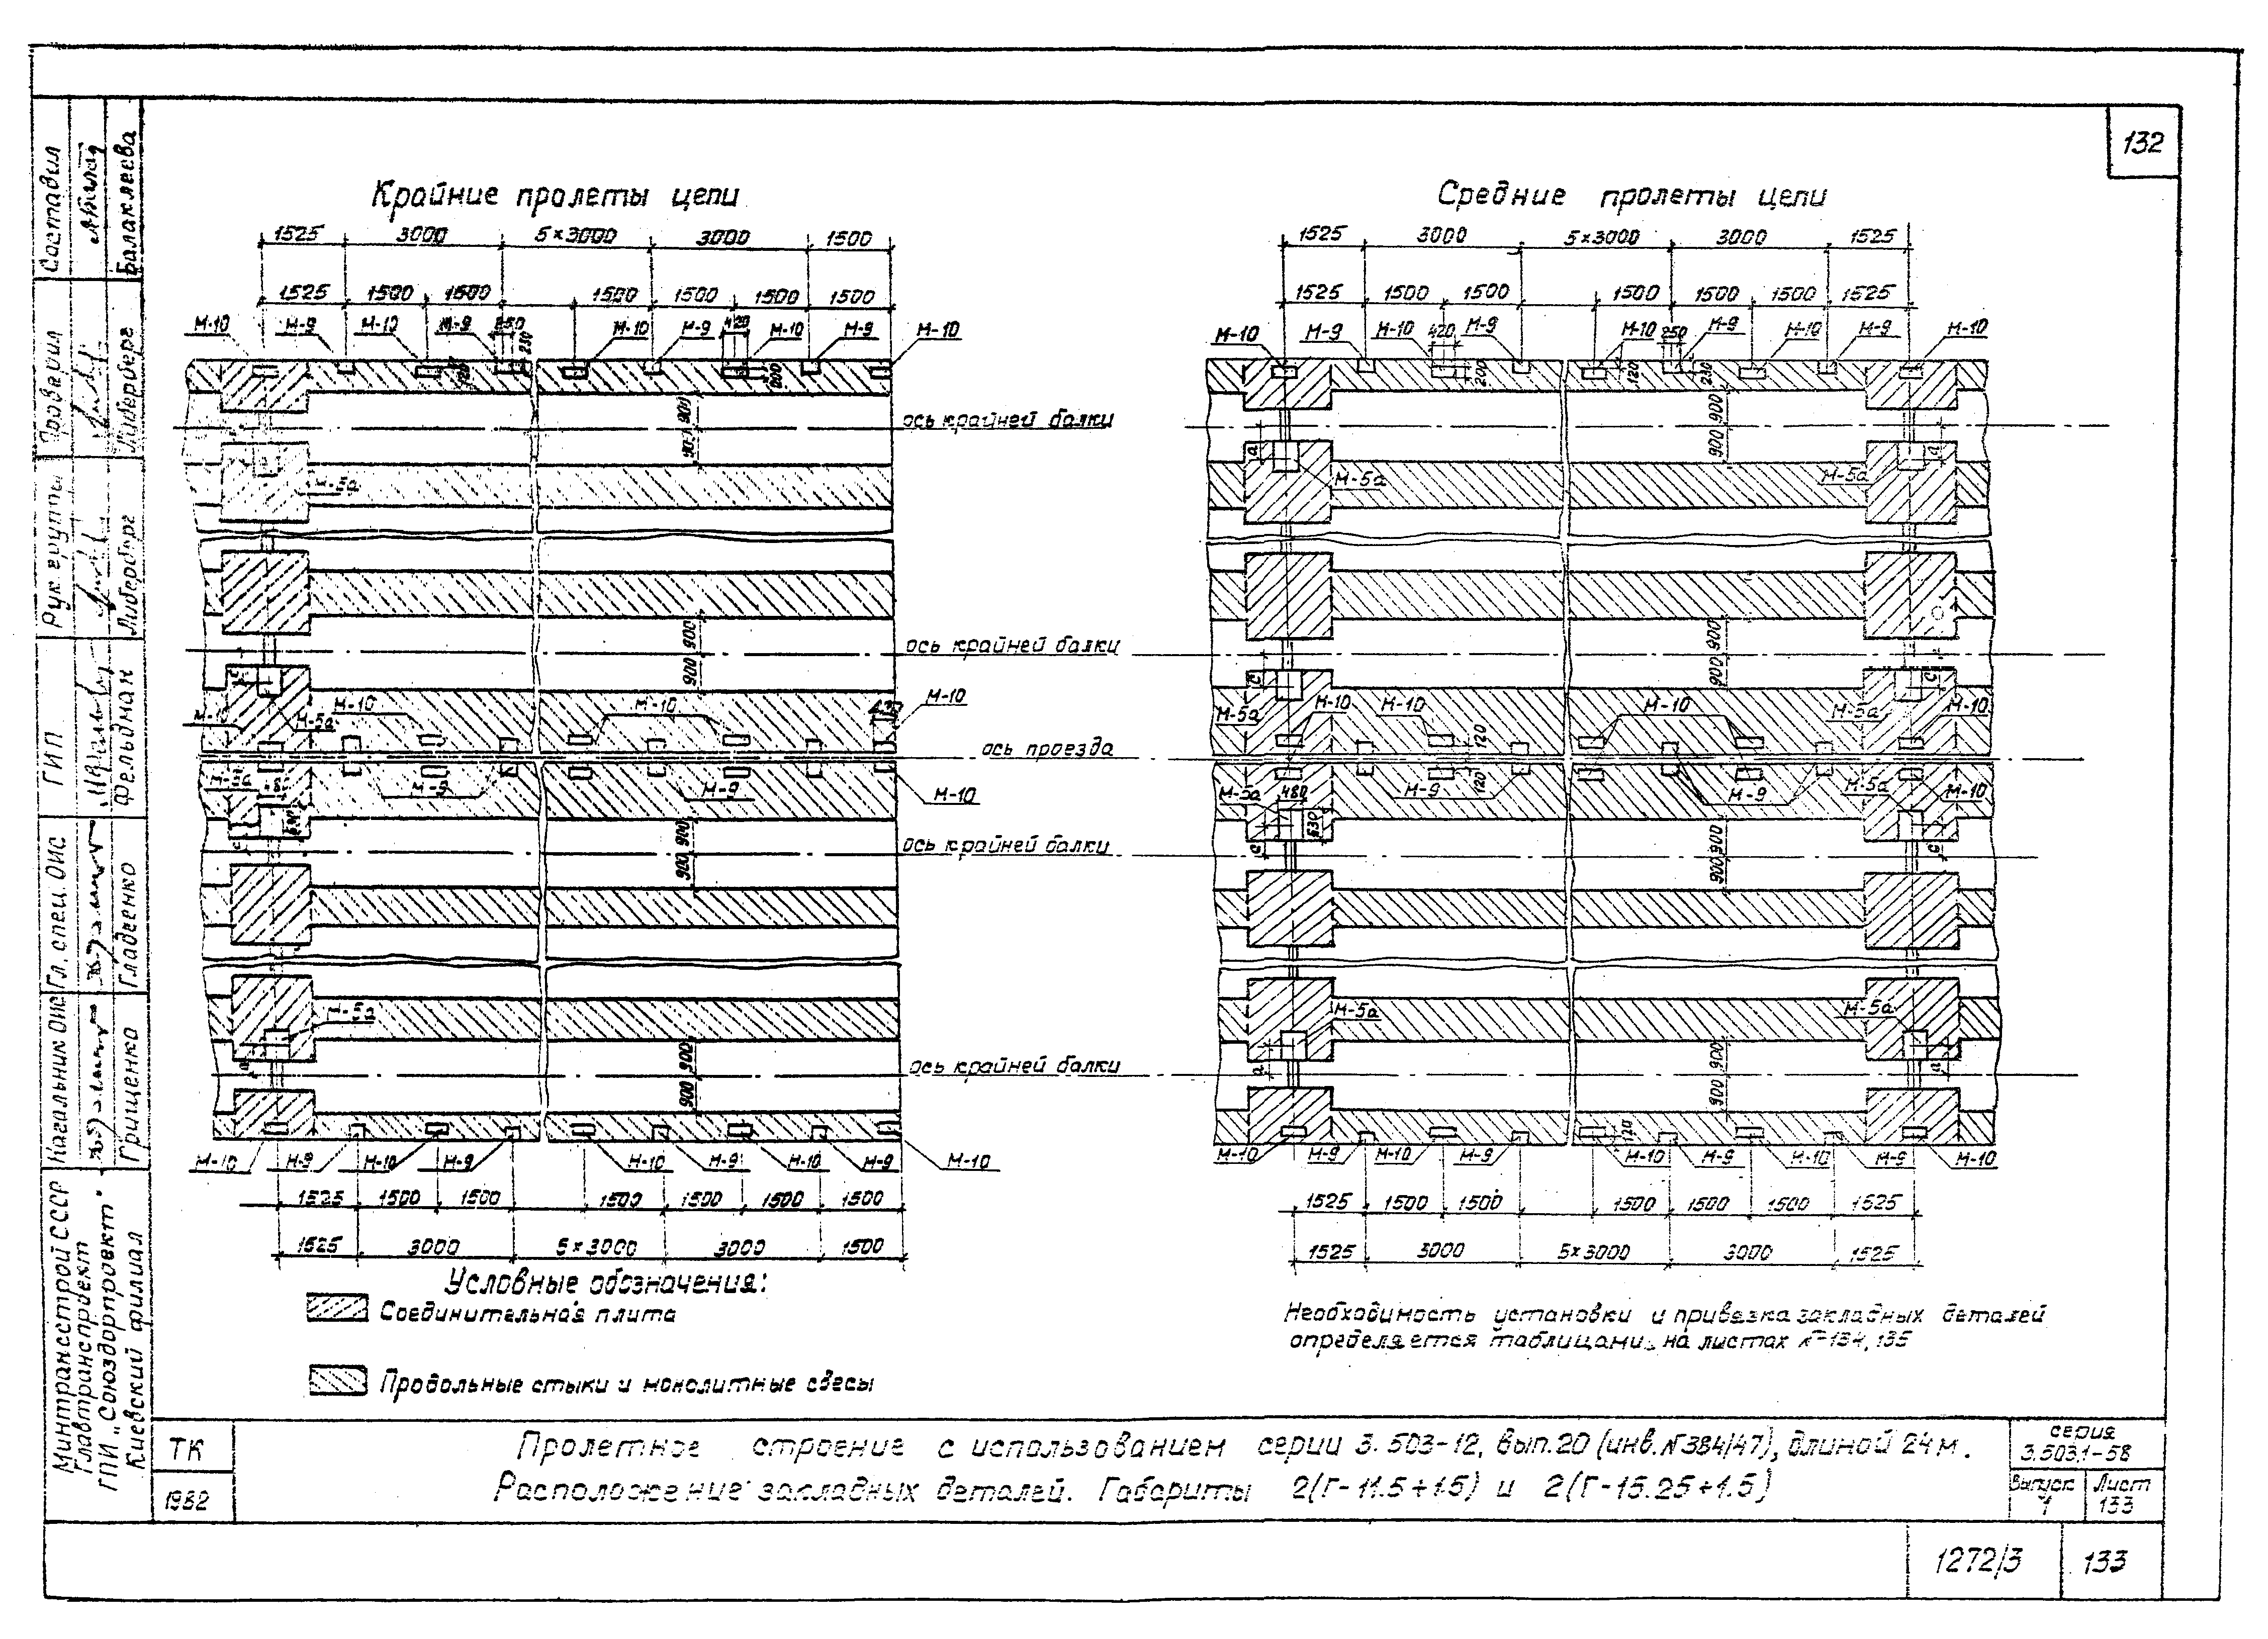 132
Крайние пролеты цепи
Средние пролеты цепи
1525 3000 5×3000 3000 1500
1525 3000 5×3000 3000 1525
1525 1500 1500 1500 1500 1500 1500
1525 1500 1500 1500 1500 1500 1525
М-10 М-9 М-10 М-9 250 М-10 М-9 420 М-10 М-9 М-10
М-10 М-9 М-10 420 М-9 М-10 250 М-9 М-10 М-9 М-10
230 120 200
200 120 230
900 900
ось крайней балки
900 900
а а
М-5а
М-5а М-5а
900 900
ось крайней балки
900 900
с с с
М-10 М-5а М-10 М-10 М-10
М-5а М-10 М-10 М-10 М-5а М-10
120
ось проезда
М-5а М-9 М-9 М-10
М-5а 480 М-9 120 М-9 М-5а М-10
630
с с с
900 900
ось крайней балки
900 900
М-5а
М-5а М-5а
а а а
900 900
ось крайней балки
900 900
120
М-10 М-9 М-10 М-9 М-10 М-9 М-10 М-9 М-10
М-10 М-9 М-10 М-9 М-10 М-9 М-10 М-9 М-10
1525 1500 1500 1500 1500 1500 1500
1525 1500 1500 1500 1500 1500 1525
1525 3000 5×3000 3000 1500
1525 3000 5×3000 3000 1525
Условные обозначения:
Соединительная плита
Продольные стыки и монолитные свесы
Необходимость установки и привязка закладных деталей
определяется таблицами на листах №134, 135
Составил Балаклеева
Проверил Либерберг
Рук группы Либерберг
ГИП Фельдман
Гл. спец. ОИС Гладенко
ОИС Гриценко
Минтрансстрой СССР
Главтранспроект
ГПИ „Союздорпроект"
Киевский филиал
ТК
1982
Пролетное строение с использованием серии 3.503-12, вып.20 (инв.№384/47), длиной 24м.
Расположение закладных деталей. Габариты 2(Г-11.5+1.5) и 2(Г-15.25+1.5)
серия
3.503.1-58
Выпуск
1
Лист
133
1272/3
133